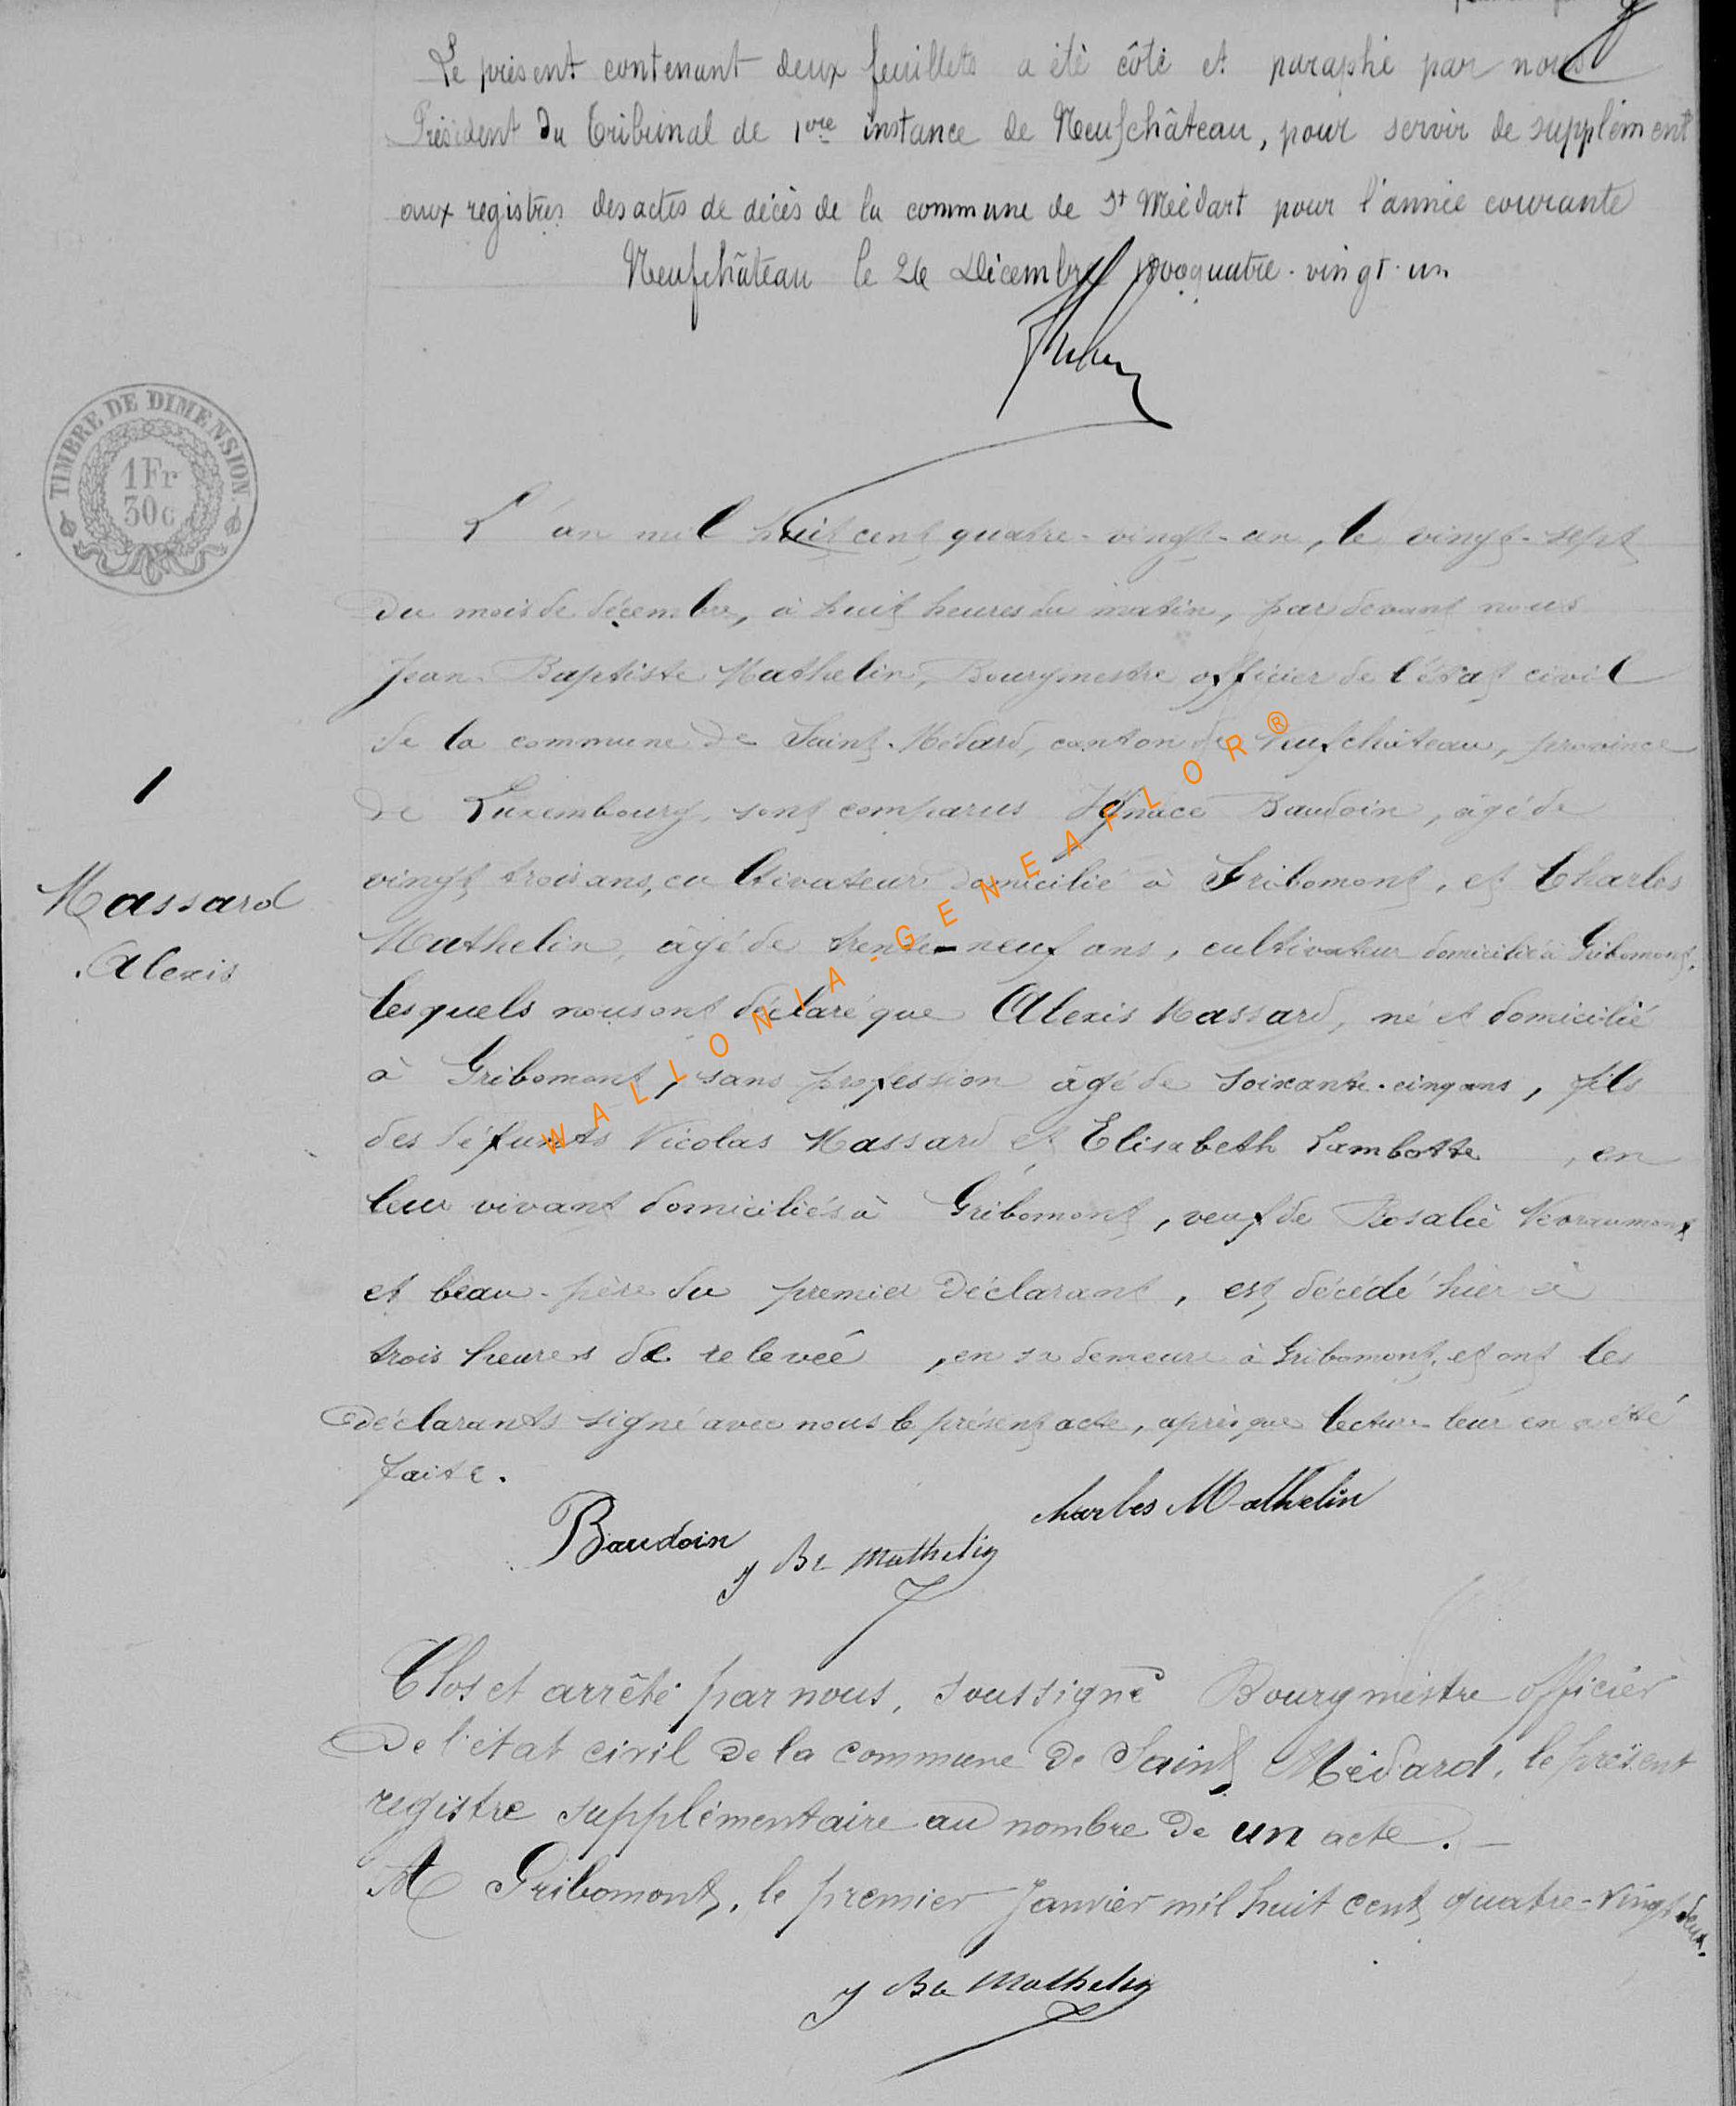 Le présent contenant deux feuillets a été côté et paraphé par nous
Président du Tribunal de 1ère instance de Neufchâteau, pour servir de supplément
aux registres des actes de décès de la commune de St Médart pour l'année courante
Neufchâteau le 26 Décembre quatre-vingt-un
TIMBRE DE DIMENSION.
1Fr
30c
L'an mil huit cent quatre-vingt-un, le vingt-sept
du mois de décembre, à huit heures du matin, par devant nous
Jean-Baptiste Mathelin, Bourgmestre officier de l'état civil
de la commune de Saint-Médard, canton de Neufchâteau, province
de Luxembourg, sont comparus Ignace Baudoin, âgé de
vingt trois ans, cultivateur domicilié à Gribomont, et Charles
Mathelin, âgé de trente-neuf ans, cultivateur domicilié à Gribomont,
lesquels nous ont déclaré que Alexis Massard, né et domicilié
à Gribomont, sans profession âgé de soixante-cinq ans, fils
des défunts Nicolas Massard et Elisabeth Lambotte, en
leur vivant domiciliés à Gribomont, veuf de Rosalie
et beau-père du premier déclarant, est décédé hier à
trois heures de relevée, en sa demeure à Gribomont, et ont les
déclarants signé avec nous le présent acte, après que lecture leur en a été
faite.
1
Massard
Alexis
Baudoin
J Bte Mathelin
Charles Mathelin
Clos et arrêté par nous, soussigné Bourgmestre officier
de l'état civil de la commune de Saint Médard, le présent
registre supplémentaire au nombre de un acte.
A Gribomont, le premier Janvier mil huit cent quatre-vingt deux.
J Bte Mathelin
WALLONIA.GENEAFLOR®